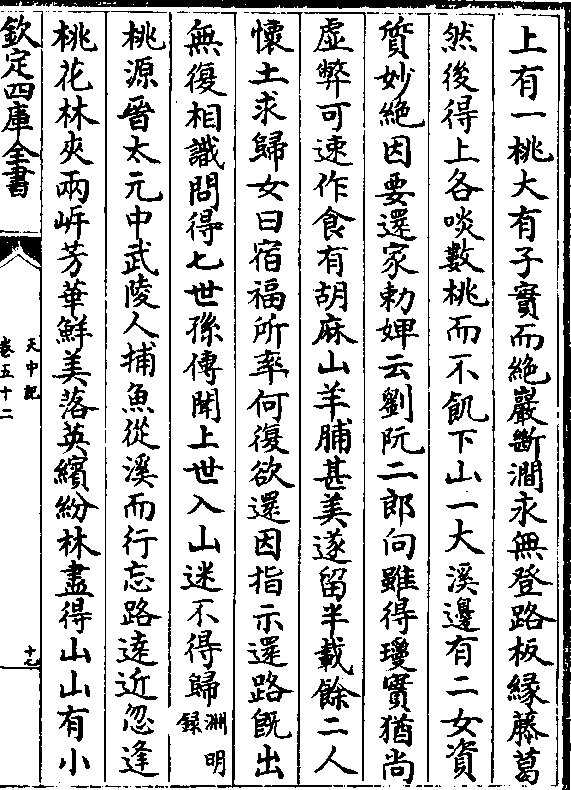 上有一桃大有子實而絶巖斷澗永無登路板縁藤葛
然後得上各啖數桃而不飢下山一大溪邊有二女資
質妙絶因要還家勅婢云劉阮二郎向雖得瓊實猶尚
虛弊可速作食有胡麻山羊脯甚美遂留半載餘二人
懷土求歸女曰宿福所牽何復欲還因指示還路既出
無復相識問得七世孫傳聞上世入山迷不得歸淵明錄
桃源晉太元中武陵人捕魚從溪而行忘路逺近忽逢
桃花林夾兩岍芳華鮮美落英繽紛林盡得山山有小
欽定四庫全書
天中記
卷五十二
十七